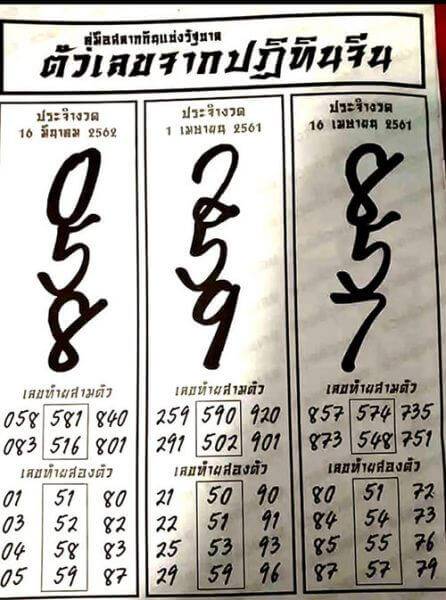 คู่มือสลากกินแบ่งรัฐบาล
ตัวเลขจากปฏิทินจีน
ประจำงวด
16 มีนาคม 2562
0
5
8
เลขท้ายสามตัว
058 581 840
083 516 801
เลขท้ายสองตัว
01 51 80
03 52 82
04 58 83
05 59 87
ประจำงวด
1 เมษายน 2561
2
5
9
เลขท้ายสามตัว
259 590 920
291 502 901
เลขท้ายสองตัว
21 50 90
22 51 91
25 53 93
29 59 96
ประจำงวด
16 เมษายน 2561
8
5
7
เลขท้ายสามตัว
857 574 735
873 548 751
เลขท้ายสองตัว
80 51 72
84 54 73
85 55 76
87 57 79